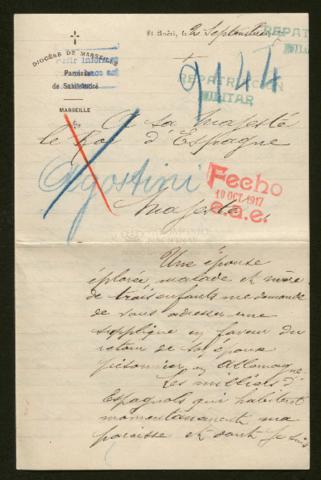 DIOCÈSE DE MARSEILLE
Paroisse
de Saint-André
MARSEILLE
St André, le 2 Septembre
REPATRIACION
MILITAR
REPATRIACION
MILITAR
9144
A Sa Majesté
le Roi d'Espagne
Agostini
Fecho
18 OCT. 1917
a.a.e.
Majesté,
Une épouse
éplorée, malade et mère
de trois enfants me demande
de vous adresser une
supplique en faveur du
retour de son époux
prisonnier en Allemagne.
Les milliers d'
Espagnols qui habitent
momentanément ma
paroisse et dont je suis